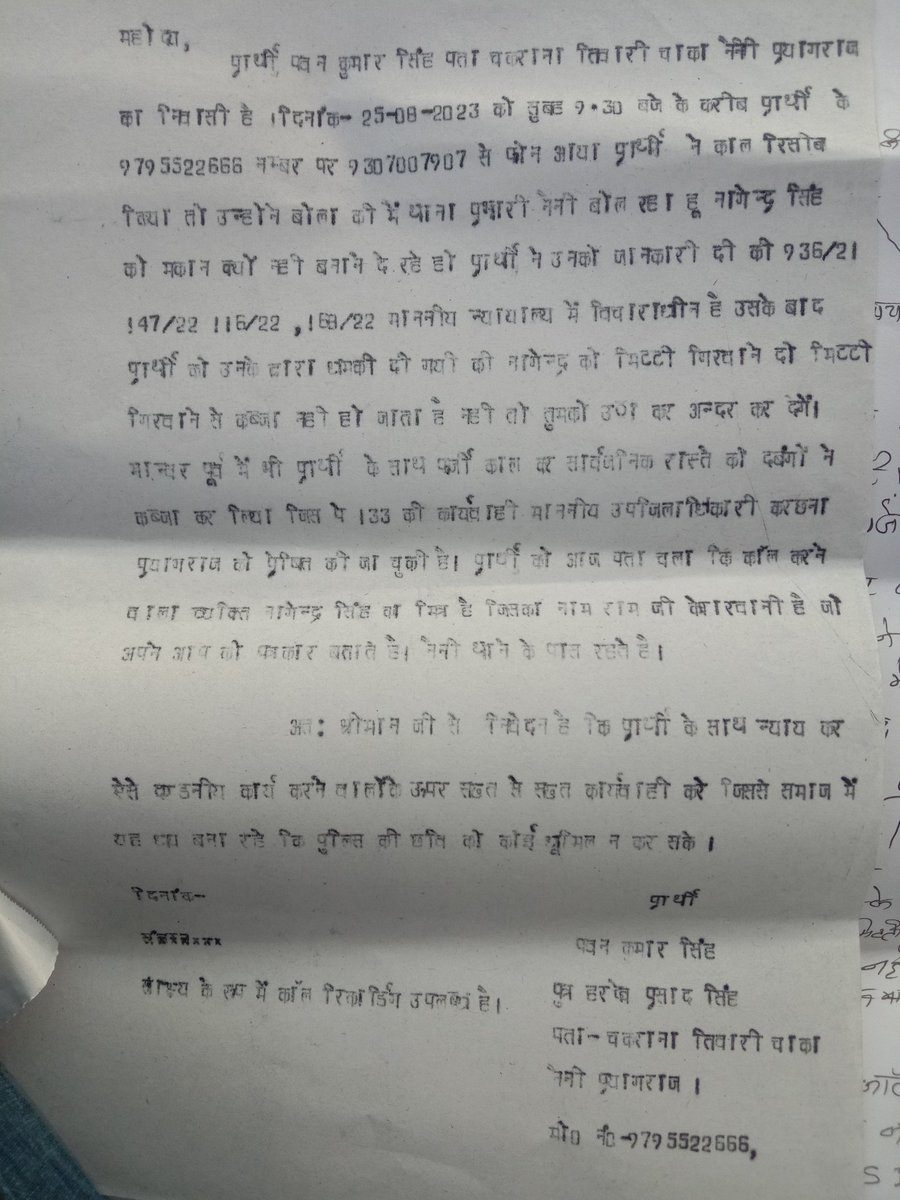 महोदय,
प्रार्थी पवन कुमार सिंह पता चकराना तिवारी चाका नैनी प्रयागराज
का निवासी है ।दिनांक- 25-08-2023 को सुबह 9.30 बजे के करीब प्रार्थी के
9795522666 नम्बर पर 9307007907 से फोन आया प्रार्थी ने काल रिसीब
किया तो उन्होने बोला की मैं थाना प्रभारी नैनी बोल रहा हू नागेन्द्र सिंह
को मकान क्यों नही बनाने दे रहे हो प्रार्थी ने उनको जानकारी दी की 936/21
147/22 116/22 ,168/22 माननीय न्यायाल्य में विचाराधीन है उसके बाद
प्रार्थी को उनके द्वारा धमकी दी गयी की नागेन्द्र को मिटटी गिरवाने दो मिटटी
गिरवाने से कब्जा नही हो जाता है नही तो तुमको उठा कर अन्दर कर देगें।
मान्यवर पूर्व में भी प्रार्थी के साथ फर्जी काल कर सार्वजनिक रास्ते को दबंगों ने
कब्जा कर लिया जिस पे 133 की कार्यवाही माननीय उपजिलाधिकारी करछना
प्रयागराज को प्रेषित की जा चुकी है। प्रार्थी को आज पता चला कि कॉल करने
वाला व्यक्ति नागेन्द्र सिंह का मित्र है जिसका नाम राम जी केशरवानी है जो
अपने आप को पत्रकार बताते है। नैनी थाने के पास रहते है।
अतः श्रीमान जी से निवेदन है कि प्रार्थी के साथ न्याय कर
ऐसे दण्डनीय कार्य करने वालोंके ऊपर सख्त से सख्त कार्यवाही करे जिससे समाज में
यह भय बना रहे कि पुलिस की छवि को कोई धूमिल न कर सके ।
दिनांक- प्रार्थी
पवन कमार सिंह
साक्ष्य के रूप में कॉल रिकार्डिंग उपलब्ध है। पुत्र प्रसाद सिंह
पता- चकराना तिवारी चाका
नैनी प्रयागराज ।
मो0 नं0-9795522666,